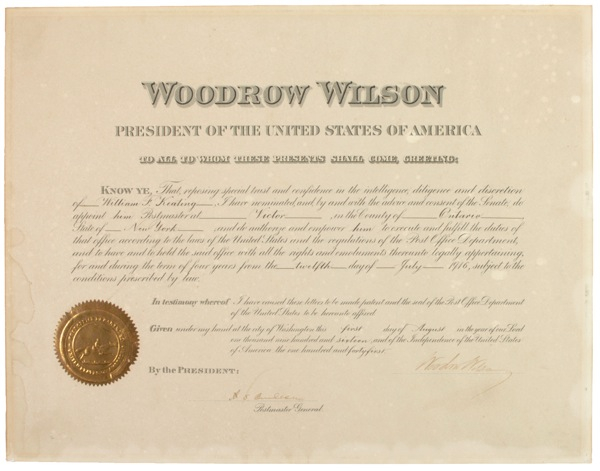 WOODROW WILSON
PRESIDENT OF THE UNITED STATES OF AMERICA
TO ALL TO WHOM THESE PRESENTS SHALL COME, GREETING:
KNOW YE, That, reposing special trust and confidence in the intelligence, diligence and discretion
of William F. Keating, I have nominated, and by and with the advice and consent of the Senate, do
appoint him Postmaster at Victor, in the County of Ontario,
State of New York, and do authorize and empower him to execute and fulfill the duties of
that office according to the laws of the United States and the regulations of the Post Office Department,
and to have and to hold the said office with all the rights and emoluments thereunto legally appertaining,
for and during the term of four years from the twelfth day of July 1916, subject to the
conditions prescribed by law.
In testimony whereof I have caused these letters to be made patent and the seal of the Post Office Department
of the United States to be hereunto affixed.
Given under my hand at the city of Washington this first day of August in the year of our Lord
one thousand nine hundred and sixteen, and of the Independence of the United States
of America the one hundred and forty first.
By the PRESIDENT:
Woodrow Wilson
Postmaster General.